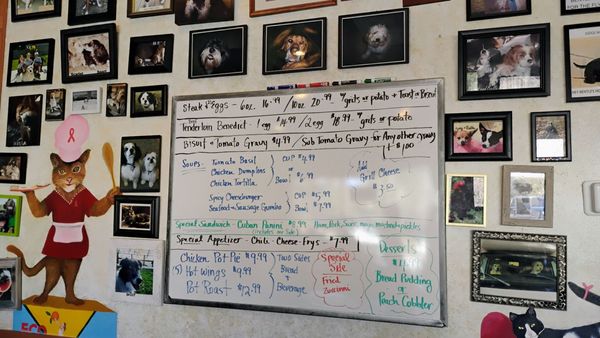 Steak & Eggs - 6oz 16.99 / 10oz 20.99 w/ grits or potato + Toast or Biscuit
Tenderloin Benedict - 1 egg $14.99 / 2 egg $18.99 w/ grits or potato
Biscuit + Tomato Gravy $4.99 / Sub Tomato Gravy for Any other gravy
+ $1.00
Soups: Tomato Basil
Chicken Dumplins
Chicken Tortilla
Cup $4.99
Bowl $6.99
Spicy Cheeseburger
Seafood + Sausage Gumbo
Cup $5.99
Bowl $7.99
Add
Grill Cheese
$3.50
Special Sandwich - Cuban Panini $9.99 Ham, Pork, Swiss, mayo, mustard + pickles
(includes one side)
Special Appetizer - Chili Cheese Frys - $7.99
Chicken Pot Pie $9.99
(5) Hot wings $9.99
Pot Roast $12.99
Two Sides
Bread
+
Beverage
Special
Side
Fried
Zuccini
Desserts
Bread Pudding
or
Peach Cobbler